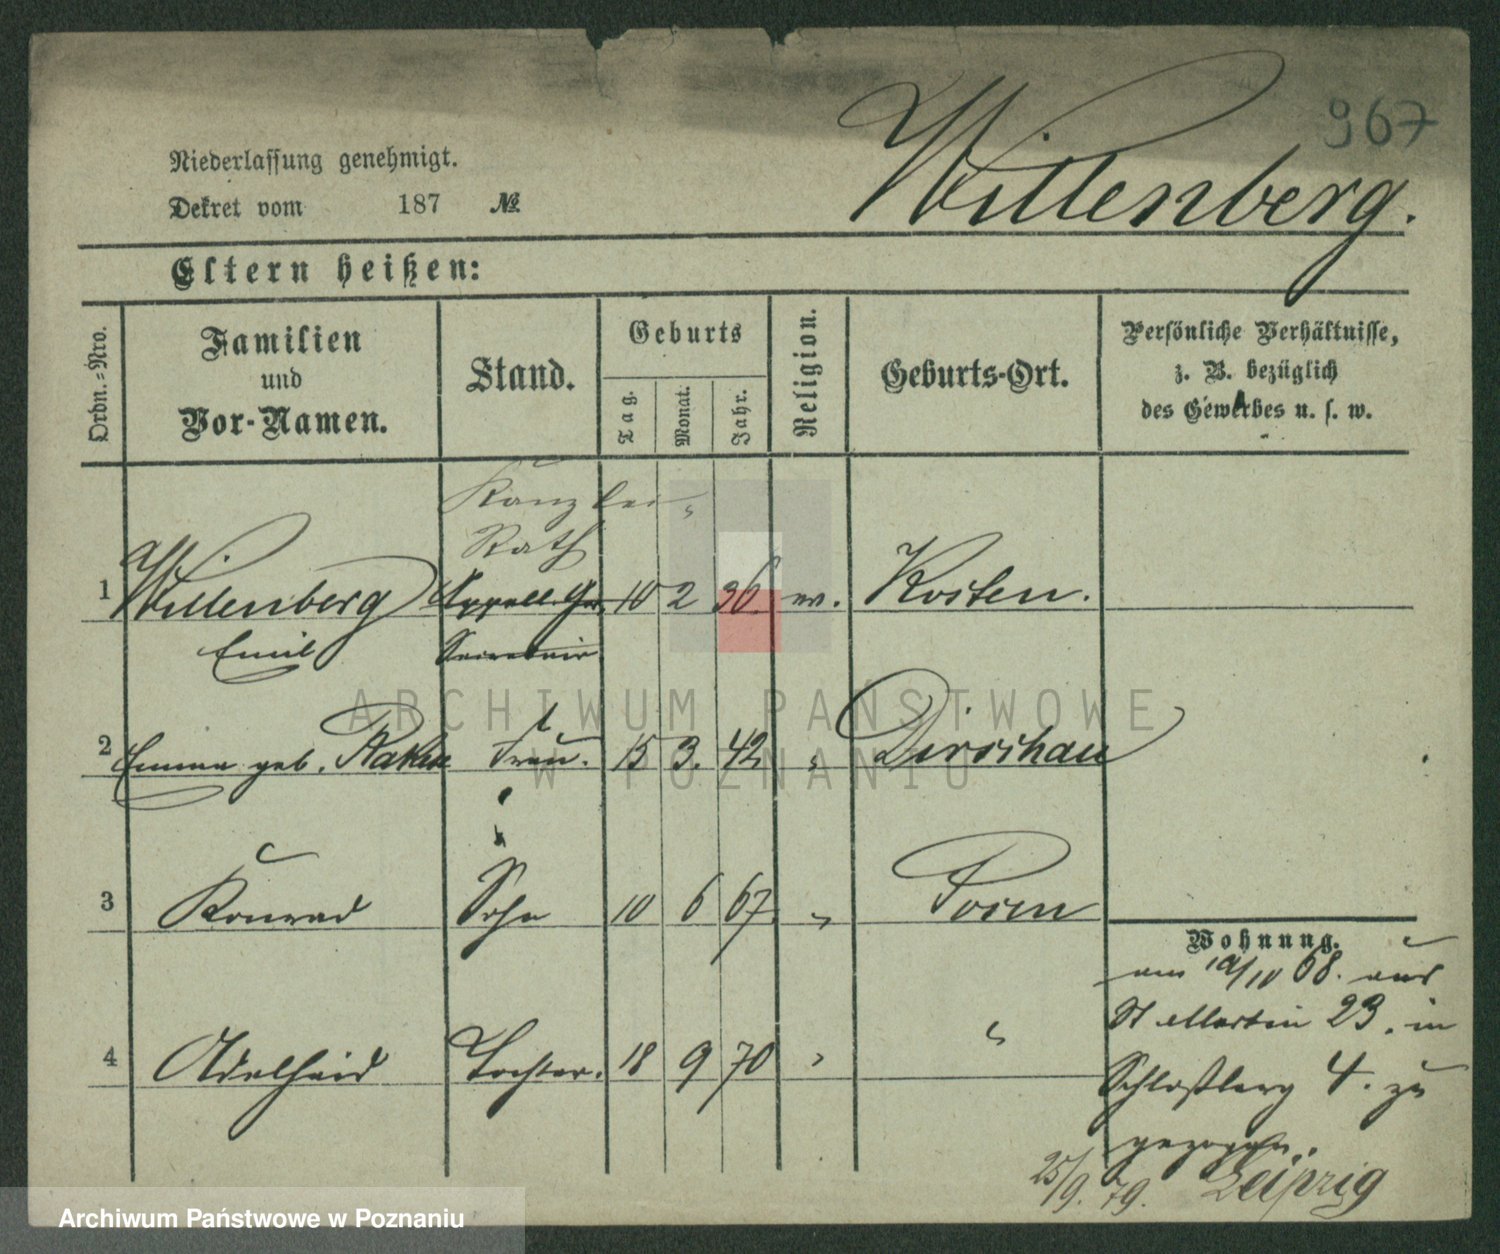 967
Willenberg.
Niederlassung genehmigt.
Dekret vom 187 №
Eltern heißen:
Ordn.-Nro.
Familien
und
Vor-Namen.
Stand.
Geburts
Tag.
Monat.
Jahr.
Religion.
Geburts-Ort.
Persönliche Verhältnisse,
z. B. bezüglich
des Gewerbes u. s. w.
Kanzlei-
Rath
1 Willenberg Appell. Ger. 10 2 36 ev. Kosten.
Emil Secretair
2 Emma geb. Frau. 15 3. 42 " Dirschau
3 Konrad Sohn 10 6 67 " Posen
4 Adelheid Tochter. 18 9 70 " "
Wohnung.
am 10/10 68. aus
St Martin 23. in
Schloßberg 4. zu
gezogen.
25/9. 79. Leipzig
ARCHIWUM PAŃSTWOWE
W POZNANIU
Archiwum Państwowe w Poznaniu